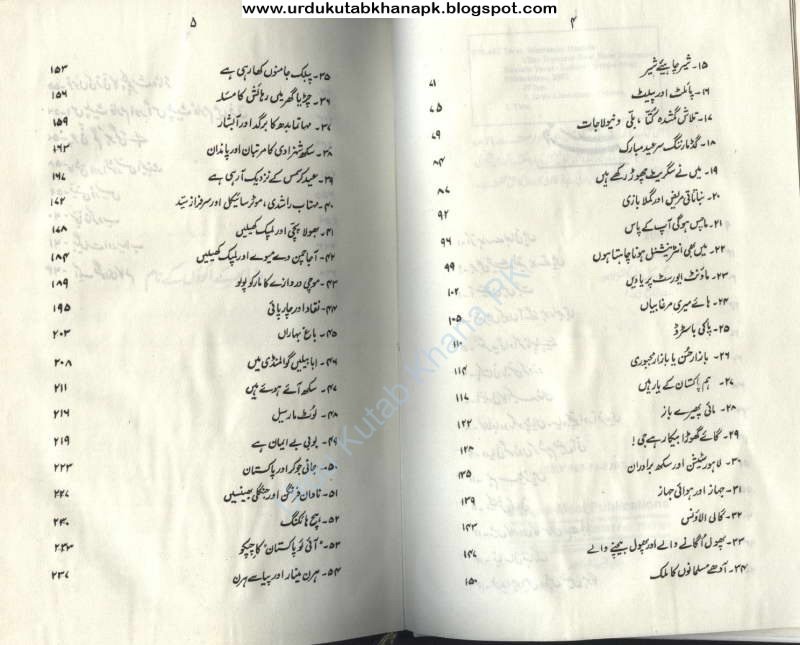 www.urdukutabkhanapk.blogspot.com
۴
۱۵۔ شیر چاہیئے شیر ۷۱
۱۶۔ پائلٹ اور پلیٹ ۷۵
۱۷۔ تلاش گمشدہ کُتّا، بلّی وغیرہ جات ۷۹
۱۸۔ گڈ مارننگ سر عید مبارک ۸۴
۱۹۔ میں نے سگریٹ چھوڑ رکھے ہیں ۸۷
۲۰۔ نباتاتی مریض اور گملا بازی ۹۲
۲۱۔ ماچس ہوگی آپ کے پاس ۹۶
۲۲۔ میں بھی انٹرنیشنل ہونا چاہتا ہوں ۹۹
۲۳۔ ماؤنٹ ایورسٹ پر یادیں ۱۰۲
۲۴۔ ہائے میری مرغابیاں ۱۰۵
۲۵۔ پاکی باسٹرڈ ۱۱۰
۲۶۔ بازارِ حُسن یا بازارِ مجبوری ۱۱۴
۲۷۔ ہم پاکستان کے یار ہیں ۱۱۷
۲۸۔ مائی پھیرے باز ۱۲۲
۲۹۔ گائے گھوڑا بیکار ہے جی! ۱۲۸
۳۰۔ لاہور سٹیشن اور سکھ برادران ۱۳۵
۳۱۔ جہاز اور ہوائی جہاز ۱۳۹
۳۲۔ کالی الاؤنس ۱۴۳
۳۳۔ پھول اُگانے والے اور پھول بیچنے والے ۱۴۷
۳۴۔ آدھے مسلمانوں کا ملک ۱۵۰
۵
۳۵۔ پبلک جامنوں کھا رہی ہے ۱۵۳
۳۶۔ چڑیا گھر میں رہائش کا مسئلہ ۱۵۶
۳۷۔ مہاتما بدھ کا برگد اور آبشار ۱۵۹
۳۸۔ سکھ شہزادی کا مرتبان اور پاندان ۱۶۳
۳۹۔ عید کرسمس کے نزدیک آ رہی ہے ۱۶۷
۴۰۔ مہتاب راشدی، موٹر سائیکل اور سرفراز سیّد ۱۷۲
۴۱۔ بھولا پنچھی اور لمپک کھیلیں ۱۷۸
۴۲۔ آ جاتین دے میوے اور لمپک کھیلیں ۱۸۴
۴۳۔ موچی دروازے کا مارکو پولو ۱۸۹
۴۴۔ نقاد اور چارپائی ۱۹۵
۴۵۔ باغ بہاراں ۲۰۳
۴۶۔ ابابیلیں گوالمنڈی میں ۲۰۸
۴۷۔ سکھ آئے ہوئے ہیں ۲۱۱
۴۸۔ لوئٹ مارسیل ۲۱۶
۴۹۔ بوبی بے ایمان ہے ۲۱۹
۵۰۔ جانی جوکر اور پاکستان ۲۲۳
۵۱۔ نادان فرنگن اور جنگلی بھینسیں ۲۲۷
۵۲۔ بیچ ہائکنگ ۲۳۰
۵۳۔ "آئی لَو پاکستان" کا چپکو ۲۳۳
۵۴۔ ہرن مینار اور پیاسے ہرن ۲۳۷
Urdu Kutab Khana PK